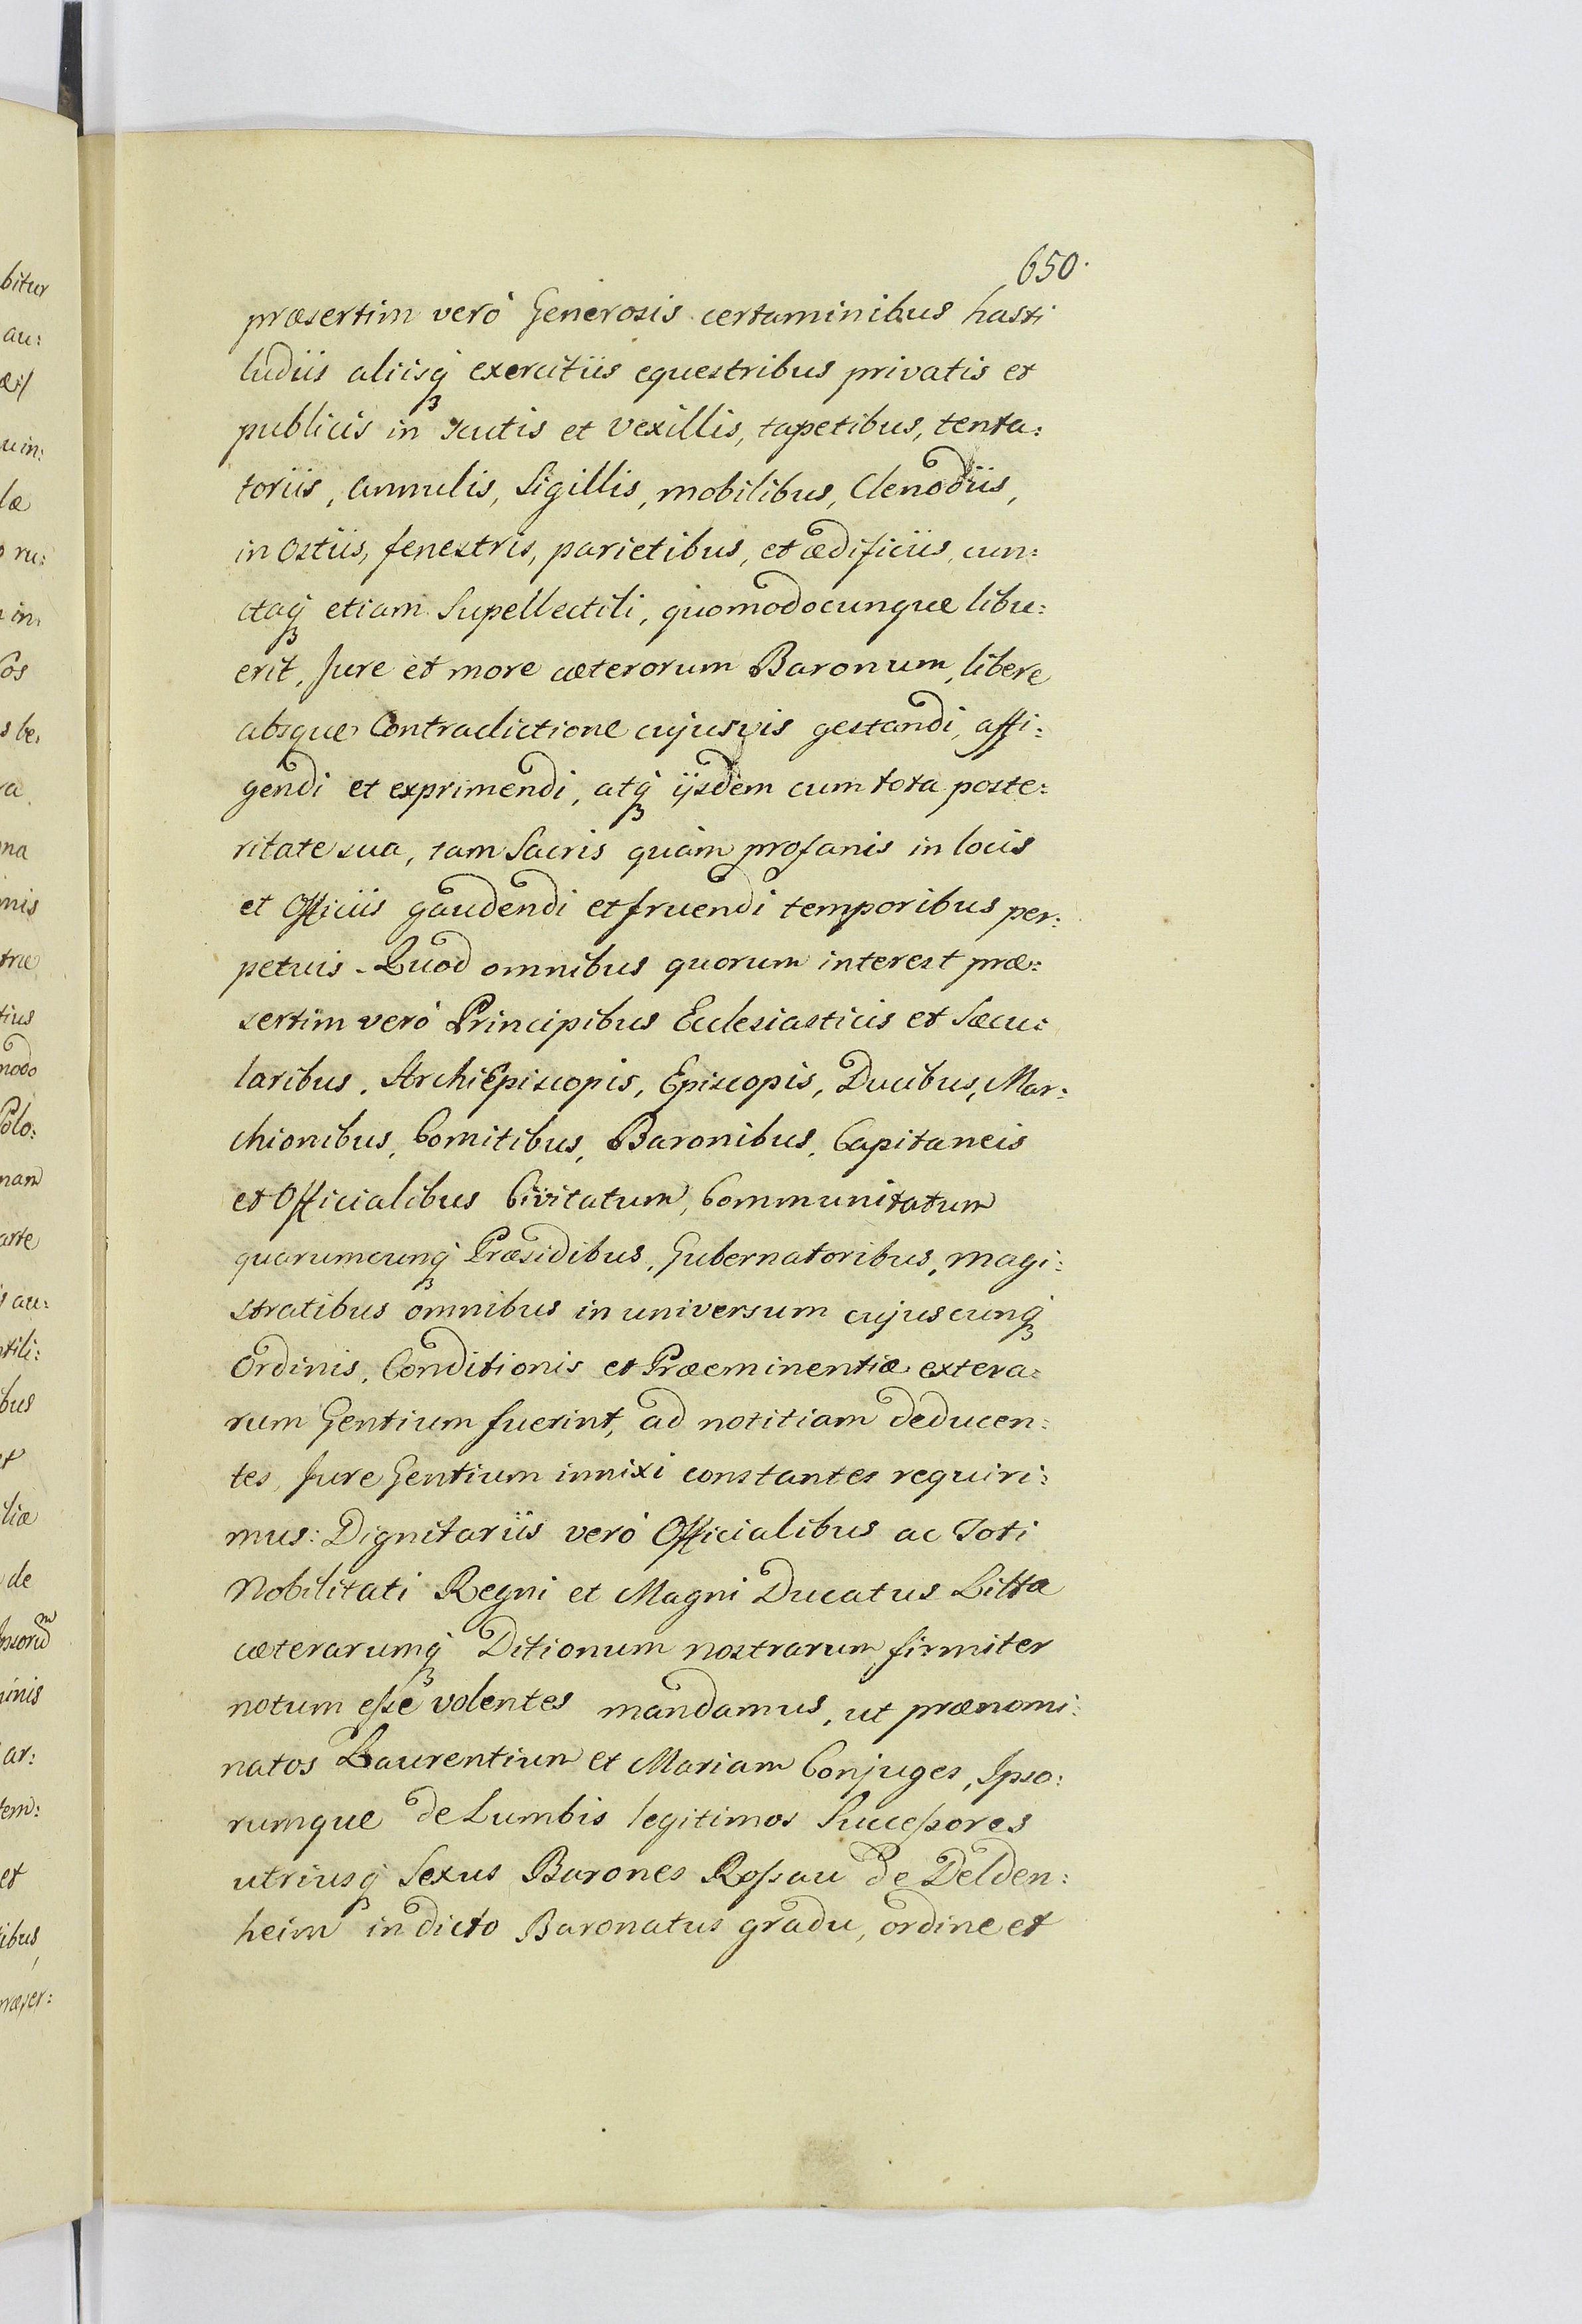 650.
præsertim verò Generosis certaminibus hasti
ludiis aliisq́ꝫ exercitiis equestribus privatis et
publicis in scutis et vexillis, tapetibus, tenta:
toriis, annulis, Sigillis, mobilibus, Clenodiis,
in Ostiis, fenestris, parietibus, et ædificiis, cun:
ctaq́ꝫ etiam Supellectili, quomodocunque libu:
erit, Jure et more cæterorum Baronum, libere
absque Contradictione cujusvis gestandi, affi:
gendi et exprimendi, atq́ꝫ ijsdem cum tota poste:
ritate sua, tam Sacris quàm profanis in locis
et Officiis gaudendi et fruendi temporibus per:
petuis. Quod omnibus quorum interest præ:
sertim verò Principibus Ecclesiasticis et Sæcu:
laribus, ArchiEpiscopis, Episcopis, Ducibus, Mar:
chionibus, Comitibus, Baronibus, Capitaneis
et Officialibus Civitatum, Communitatum
quarumcunq́ꝫ Præsidibus, Gubernatoribus, magi:
stratibus omnibus in universum cujuscunq́ꝫ
Ordinis, Conditionis et Præeminentiæ extera:
rum Gentium fuerint, ad notitiam deducen:
tes, Jure Gentium innixi constantes requiri:
mus: Dignitariis verò Officialibus ac Toti
Nobilitati Regni et Magni Ducatus Littæ
cæterarumq́ꝫ Ditionum nostrarum firmiter
notum eſse volentes mandamus, ut prænomi:
natos Laurentium et Mariam Conjuges, Ipso:
rumque de Lumbis legitimos Succeſsores
utriusq́ꝫ Sexus Barones Roſsau de Delden:
heim in dicto Baronatus gradu, ordine et
bitur
au:
uin:
læ
ru:
in:
na
mis
træ
tius
modo
Polo:
nam
arte
au:
ntili:
bus
et
liæ
de
inis
ar:
tem:
et
ibus,
præser: